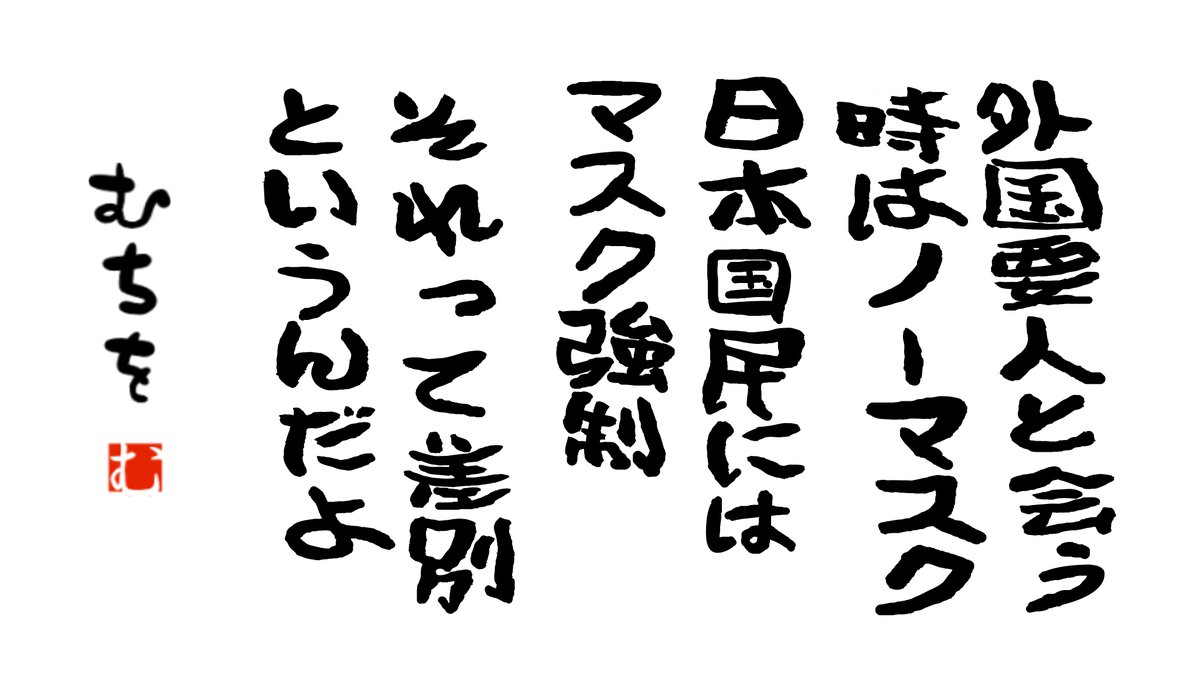 外国要人と会う
時はノーマスク
日本国民には
マスク強制
それって差別
というんだよ
むちを
む